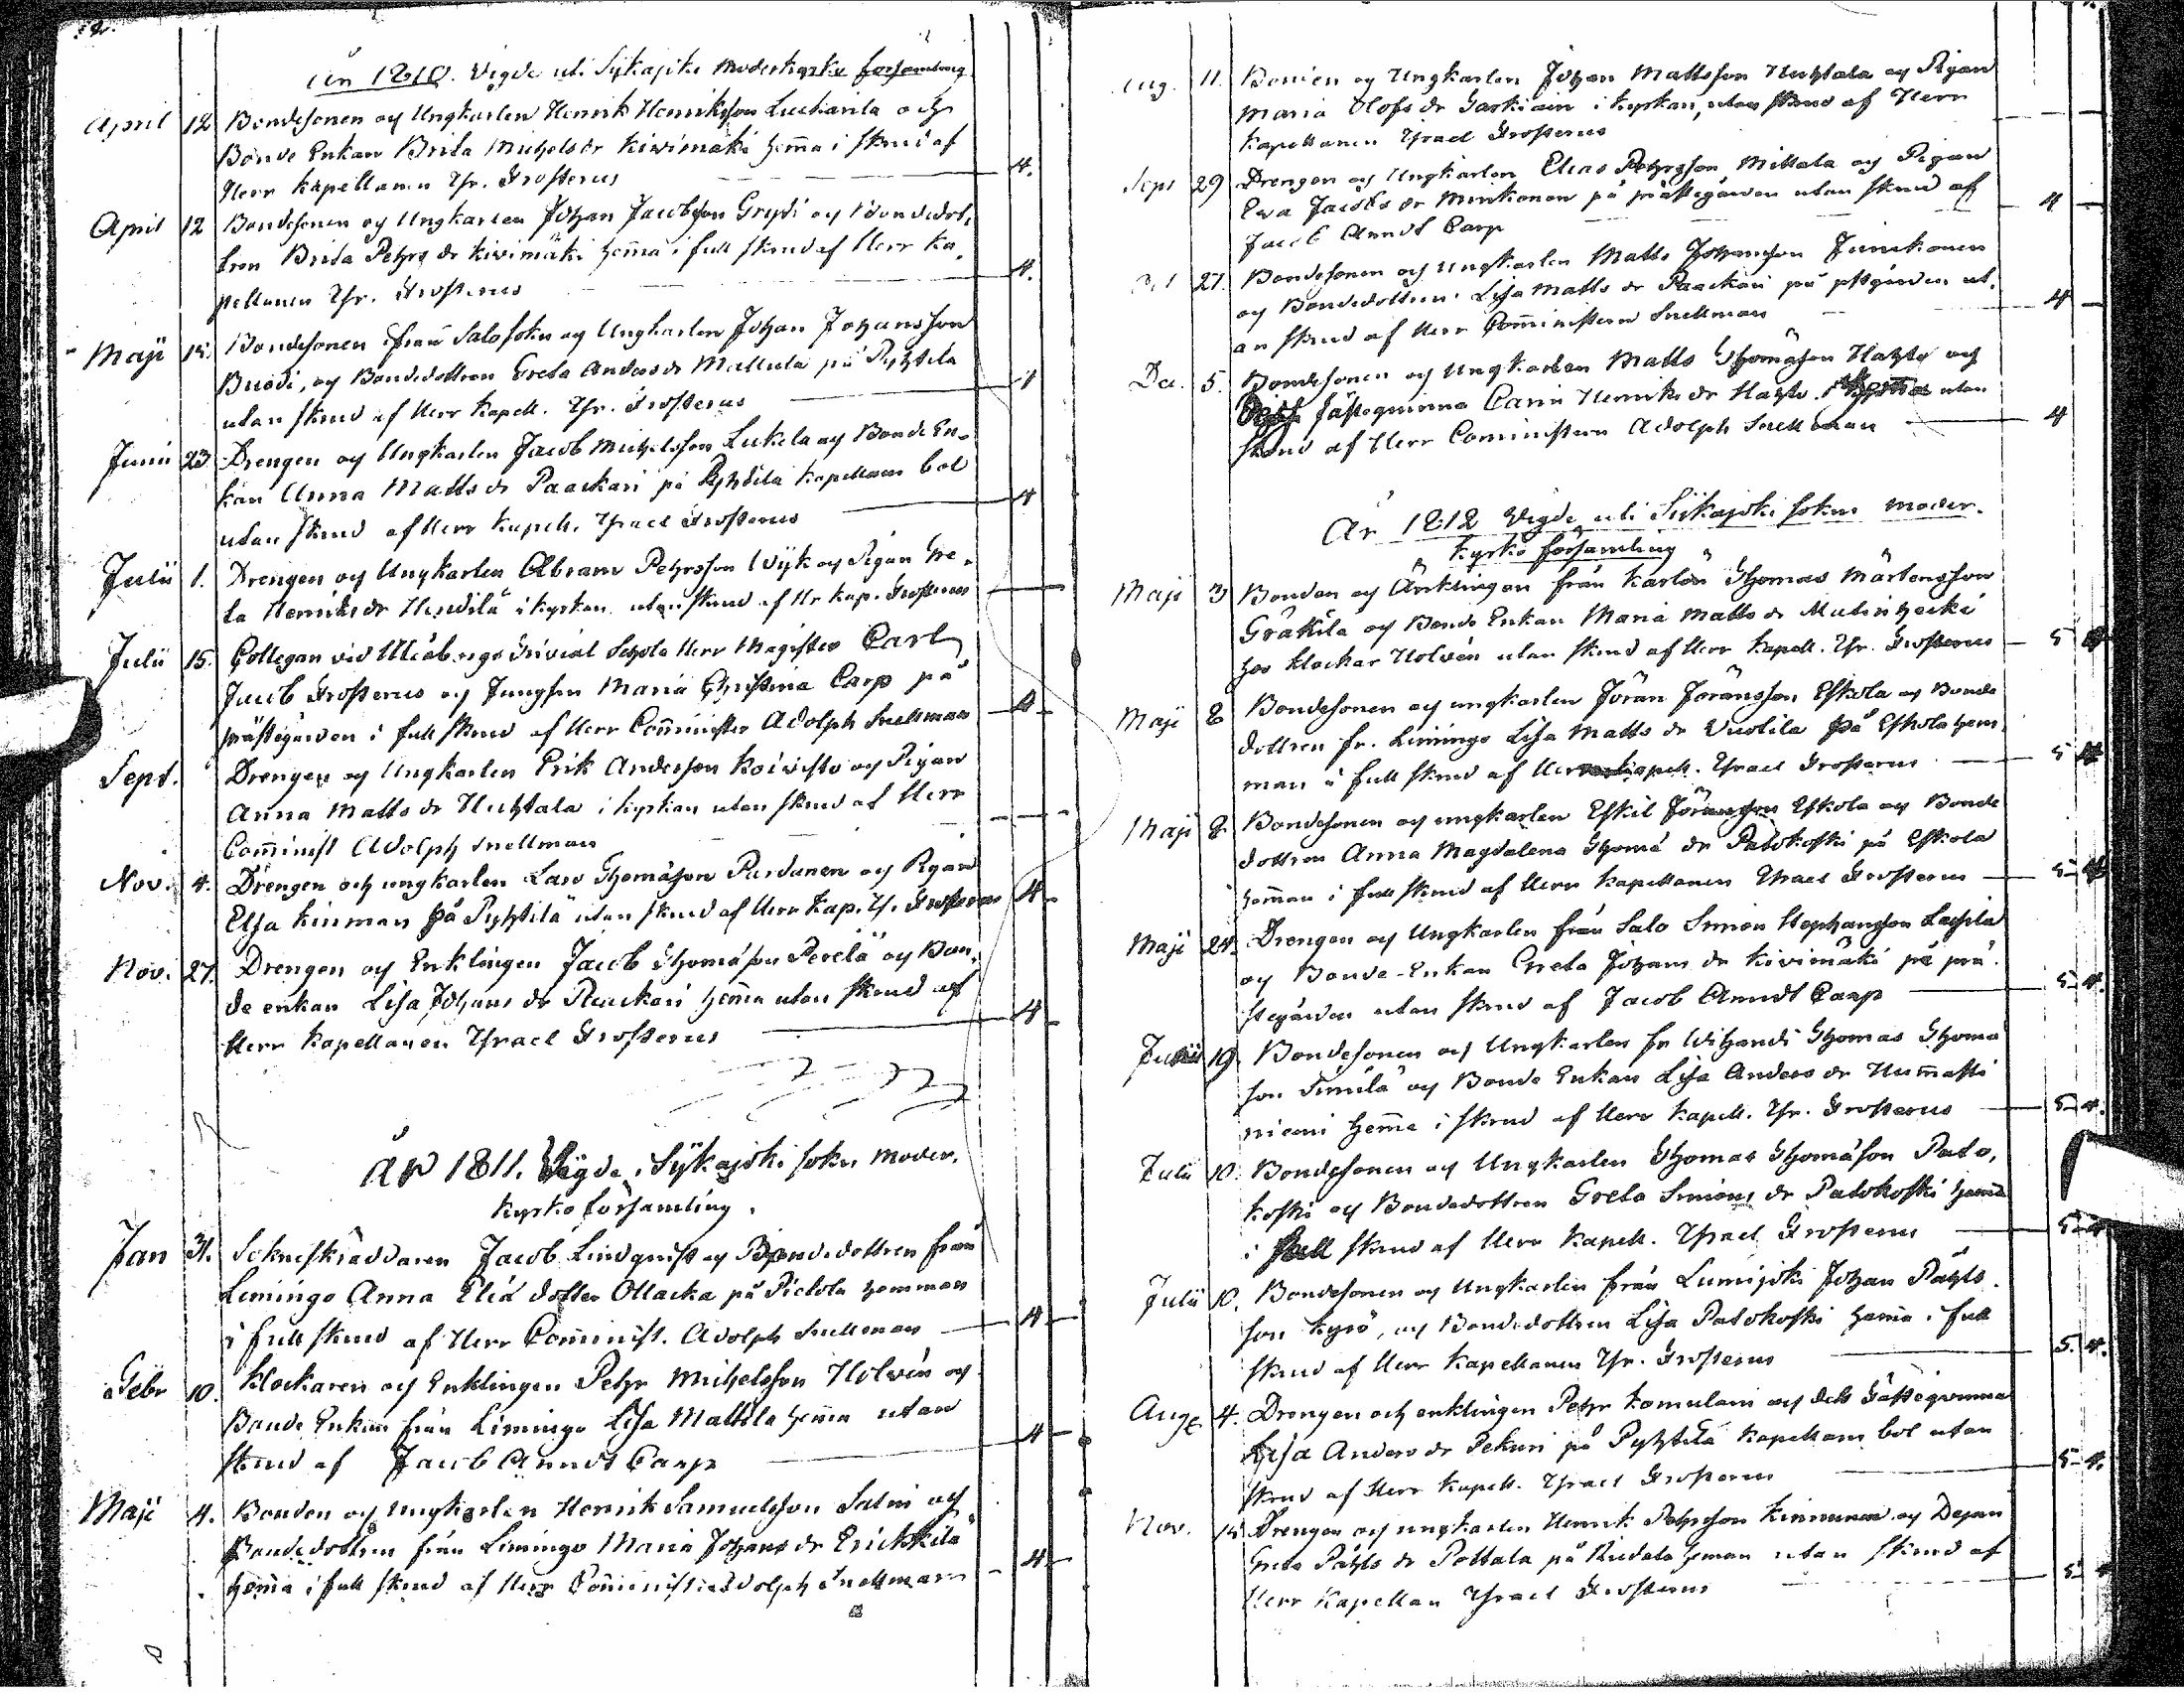 År 1810. Vigde uti Sijkajoki moderkyrko församling
April 12 Bondesonen och Ungkarlen Henrik Henriksson och
Bonde Enkan Brita Michels dr Kivimäki hema i skrud af
Herr Kapellanen Isr. Frosterus 4.
April 12 Bondesonen och Ungkarlen Johan Jacobsson Grydi och Bondedot-
tren Brita Pehrs dr Kivimäki hema i full skrud af Herr Ka-
pellanen Isr. Frosterus 4.
Maji Bondesonen ifrån Salo sokn och Ungkarlen Johan Johansson
och Bondedottren Greta Anders dr Mattula på Pyhtilä
utan skrud af Herr Kapell. Isr. Frosterus
Junii 23 Drengen och Ungkarlen Jacob Michelsson Lukela och Bonde En-
kan Anna Matts dr Paackari på Pyhtilä Kapellans bol
utan skrud af Herr Kapell. Israel Frosterus 4
Julii 1. Drengen och Ungkarlen Abram Pehrsson Wijk och Pigan Gre-
ta Henriks dr i kyrkan utan skrud af Hr Kap. Frosterus
Julii 15. Collegan vid Uleåborgs Trivial Schola Herr Magister Carl
Jacob Frosterus och Jungfrun Maria Christina Carp på
prästegården i full skrud af Herr Comminister Adolph Snellman 4
Sept. Drengen och Ungkarlen Erik Andersson Koivisto och Pigan
Anna Matts dr Huhtala i kyrkan utan skrud af Herr
Cominist Adolph Snellman
Nov. 4. Drengen och ungkarlen Lars Thomasson Purdanen och Pigan
Elsa Kinman på Pyhtilä utan skrud af Herr Kap. Is. Frosterus 4
Nov. 27. Drengen och Enklingen Jacob Thomasson Perelä och Bon-
de enkan Lisa Johans dr Paackari hema utan skrud af
Herr Kapellanen Israel Frosterus 4
År 1811. Vigde i Sijkajoki sokn moder-
kyrko församling.
Jan 31. Sokneskräddaren Jacob Lindqvist och Bondedottren från
Limingo Anna Eliæ dotter Ollacka på Pietola hemman
i full skrud af Herr Cominist. Adolph Snellman 4
Febr 10. Klockaren och Enklingen Pehr Michelsson Holvén och
Bonde Enkan från Limingo Lisa Mattila hema utan
skrud af Jacob Anndt Carp 4
Maji 4. Bonden och Ungkarlen Henrik Samuelsson Salmi och
Bondedottren från Limingo Maria Johans dr Erickkilä
hema i full skrud af Herr Cominist Adolph Snellman 4
Aug. 11. Bonden och Ungkarlen Johan Mattsson Huhtala och Pigan
Maria Olofs dr i kyrkan, utan skrud af Herr
Kapellanen Israel Frosterus
Sept 29 Drengen och Ungkarlen Elias Pehrsson Mittala och Pigan
Eva Jacobs dr Minkonen på prästegården utan skrud af
Jacob Anndt Carp 4
Oct 27. Bondesonen och Ungkarlen Matts Johansson Junikonen
och Bondedottren Lisa Matts dr Paackari på pstgården ut-
an skrud af Herr Comministern Snellman 4
Dec. 5. Bondesonen och Ungkarlen Matts Thomasson Hahto och
fästeqvinna Carin Henriks dr Hahto utan
skrud af Herr Cominstern Adolph Snellman 4
År 1812 Vigde uti Sijkajoki sokns moder-
kyrko församling
Maji 3 Bonden och Änklingen från Karlön Thomas Mårtensson
Gråkilä och Bonde Enkan Maria Matts dr
hos klockar Holvén utan skrud af Herr Kapell. Isr. Frosterus 5
Maji 8 Bondesonen och ungkarlen Jöran Jöransson Eskola och Bonde
dottren fr. Limingo Lisa Matts dr Vuotila på Eskola hem-
man i full skrud af Herr Kapell. Israel Frosterus 5
Maji 8 Bondesonen och ungkarlen Eskil Jöransson Eskola och Bonde
dottren Anna Magdalena Thomæ dr Patokoski på Eskola
heman i full skrud af Herr Kapellanen Israel Frosterus 5
Maji 24. Drengen och Ungkarlen från Salo Simon Stephansson Lassila
och Bonde-Enkan Greta Johans dr Kivimäki på prä-
stegården utan skrud af Jacob Anndt Carp 5 4.
19. Bondesonen och Ungkarlen fr Vihandi Thomas Thoma
son Simila och Bonde Enkan Lisa Anders dr Humasti
niemi hema i skrud af Herr Kapell. Isr. Frosterus 5 4.
Julii 10. Bondesonen och Ungkarlen Thomas Thomasson Pato-
koski och Bondedottren Greta Simons dr Patokoski hema
i full skrud af Herr Kapell. Israel Frosterus 5 4
Julii 10. Bondesonen och Ungkarlen från Lumijoki Johan Påhls-
son Kyrö, och Bondedottren Lisa Patokoski hema i full
skrud af Herr Kapellanen Isr. Frosterus 5. 4.
Aug. 4. Drengen och enklingen Pehr Komulain och dess Fästeqvinna
Lisa Anders dr Pekuri på Pyhtilä Kapellans bol utan
skrud af Herr Kapell. Israel Frosterus 5 4.
Nov. Drengen och ungkarlen Henrik Pehrsson Kinnunen och Pigan
Greta Påhls dr Pottala på heman utan skrud af
Herr Kapellan Israel Frosterus 5 4